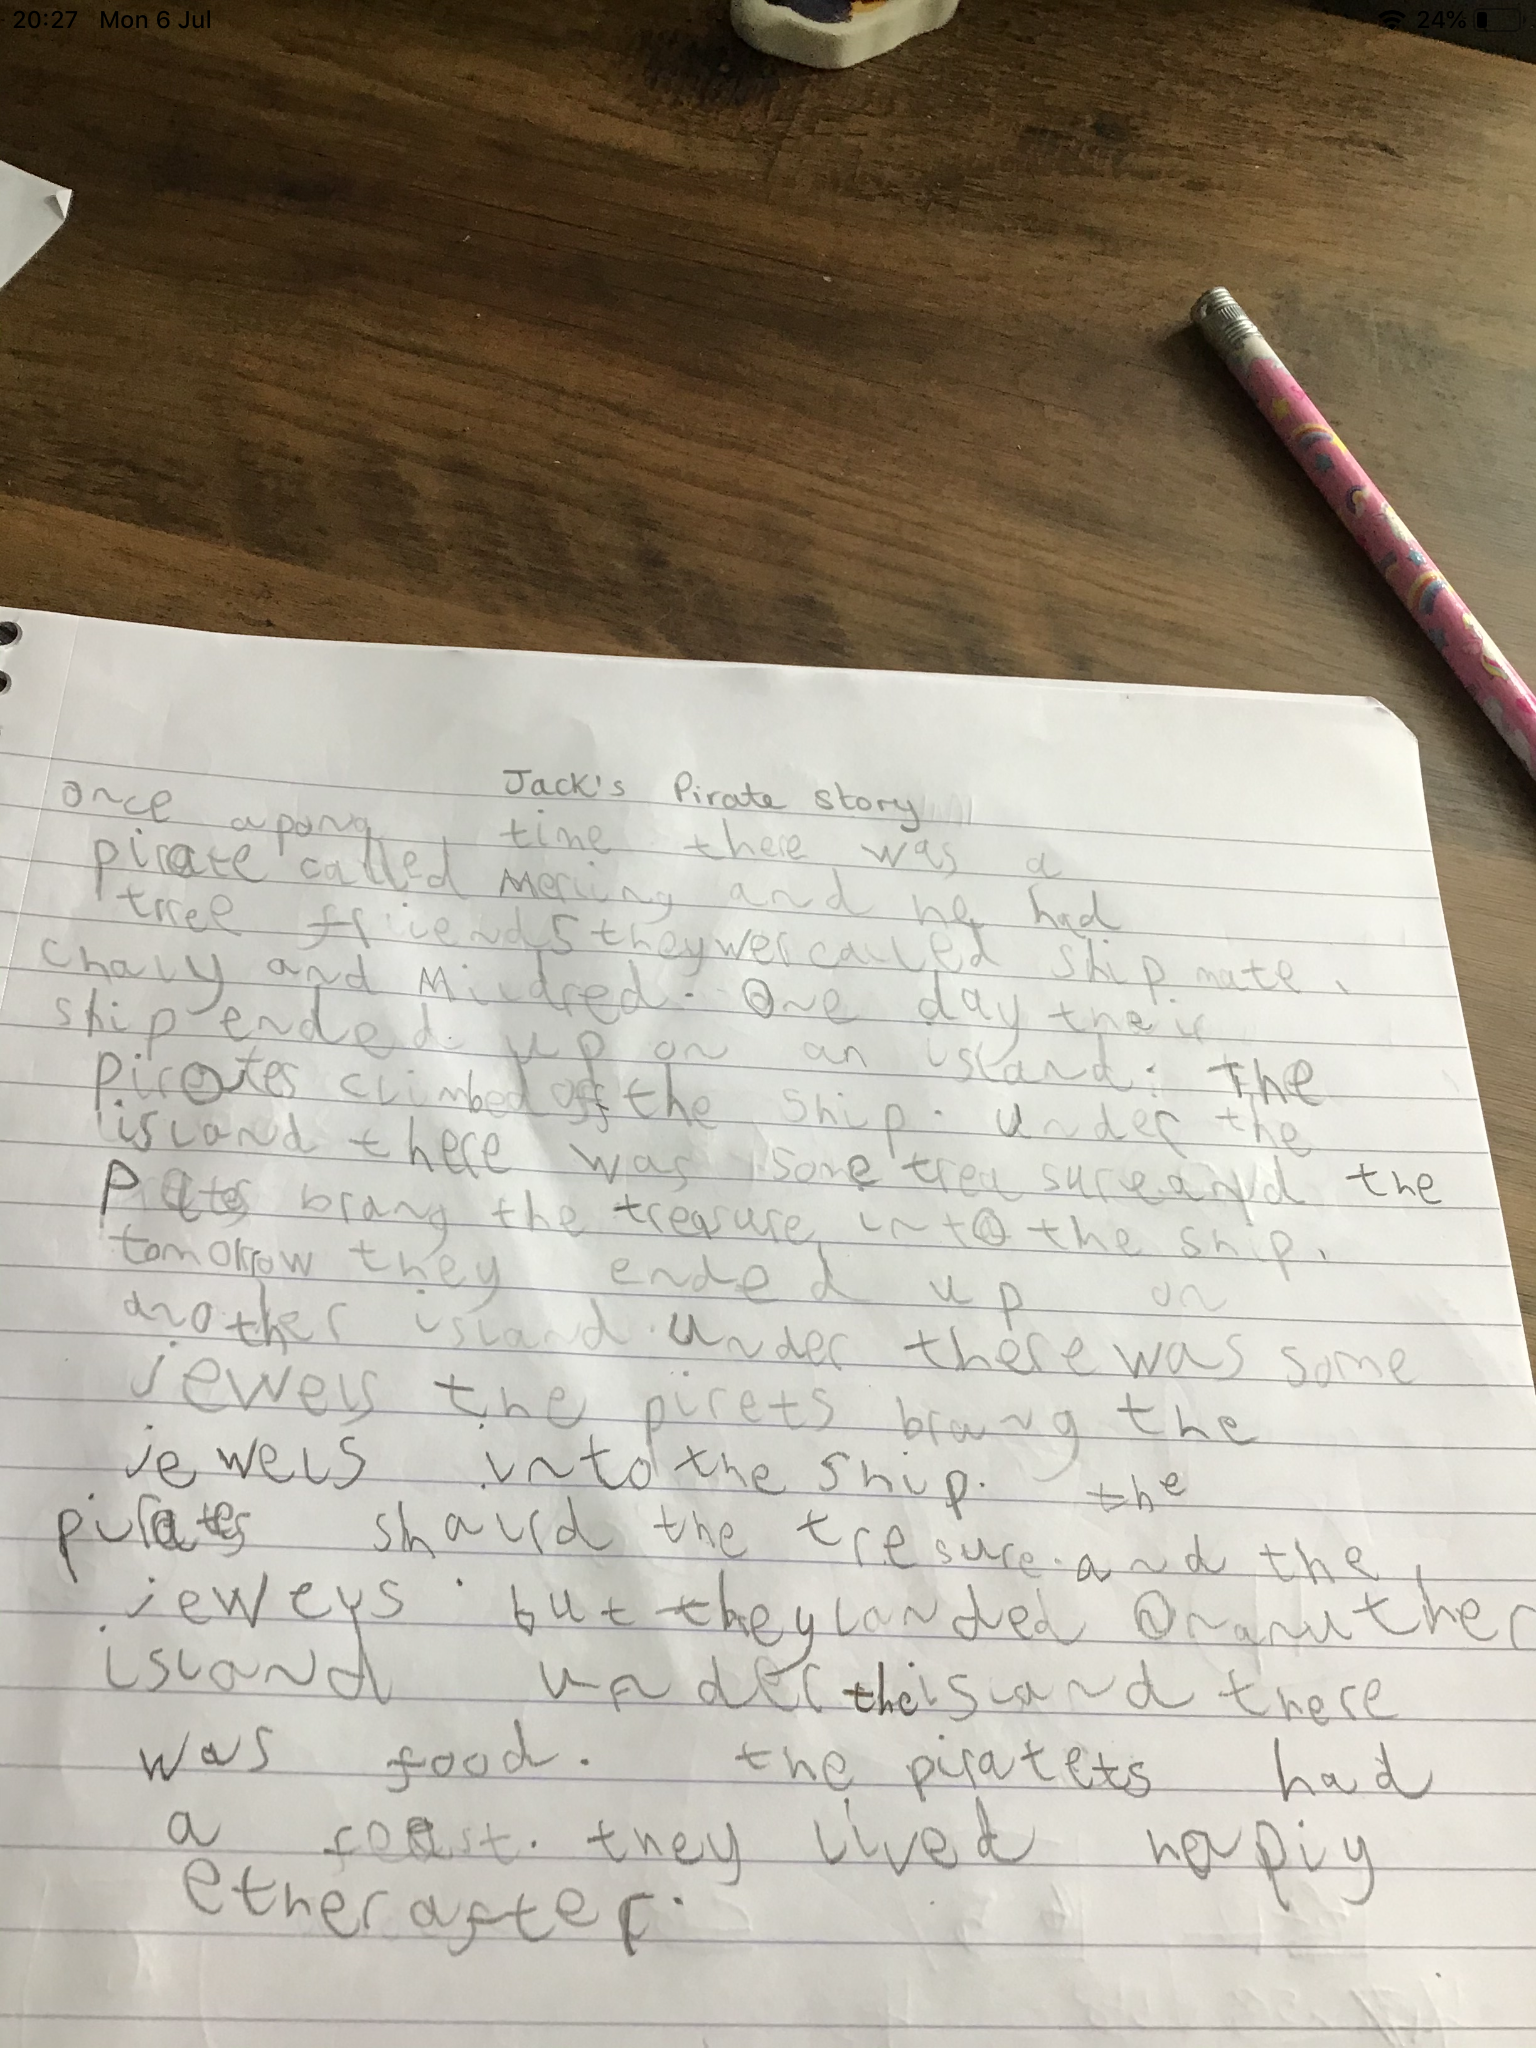 20:27 Mon 6 Jul
24%
Jack's Pirate story
once apong time there was a
pirate called Meriing and he had
tree friends they wer called ship mate,
chaly and Mildred. One day their
ship ended up on an island. The
pirates climbed off the ship. under the
island there was some treasure and the
brang the treasure into the ship.
tomorrow they ended up on
another island. under there was some
jewels the pirets brang the
jewels into the ship. the
pirates shaird the tresure. and the
jewels. but they landed On anuther
island under the island there
was food. the piratets had
a feast. they lived hapiy
ether after.